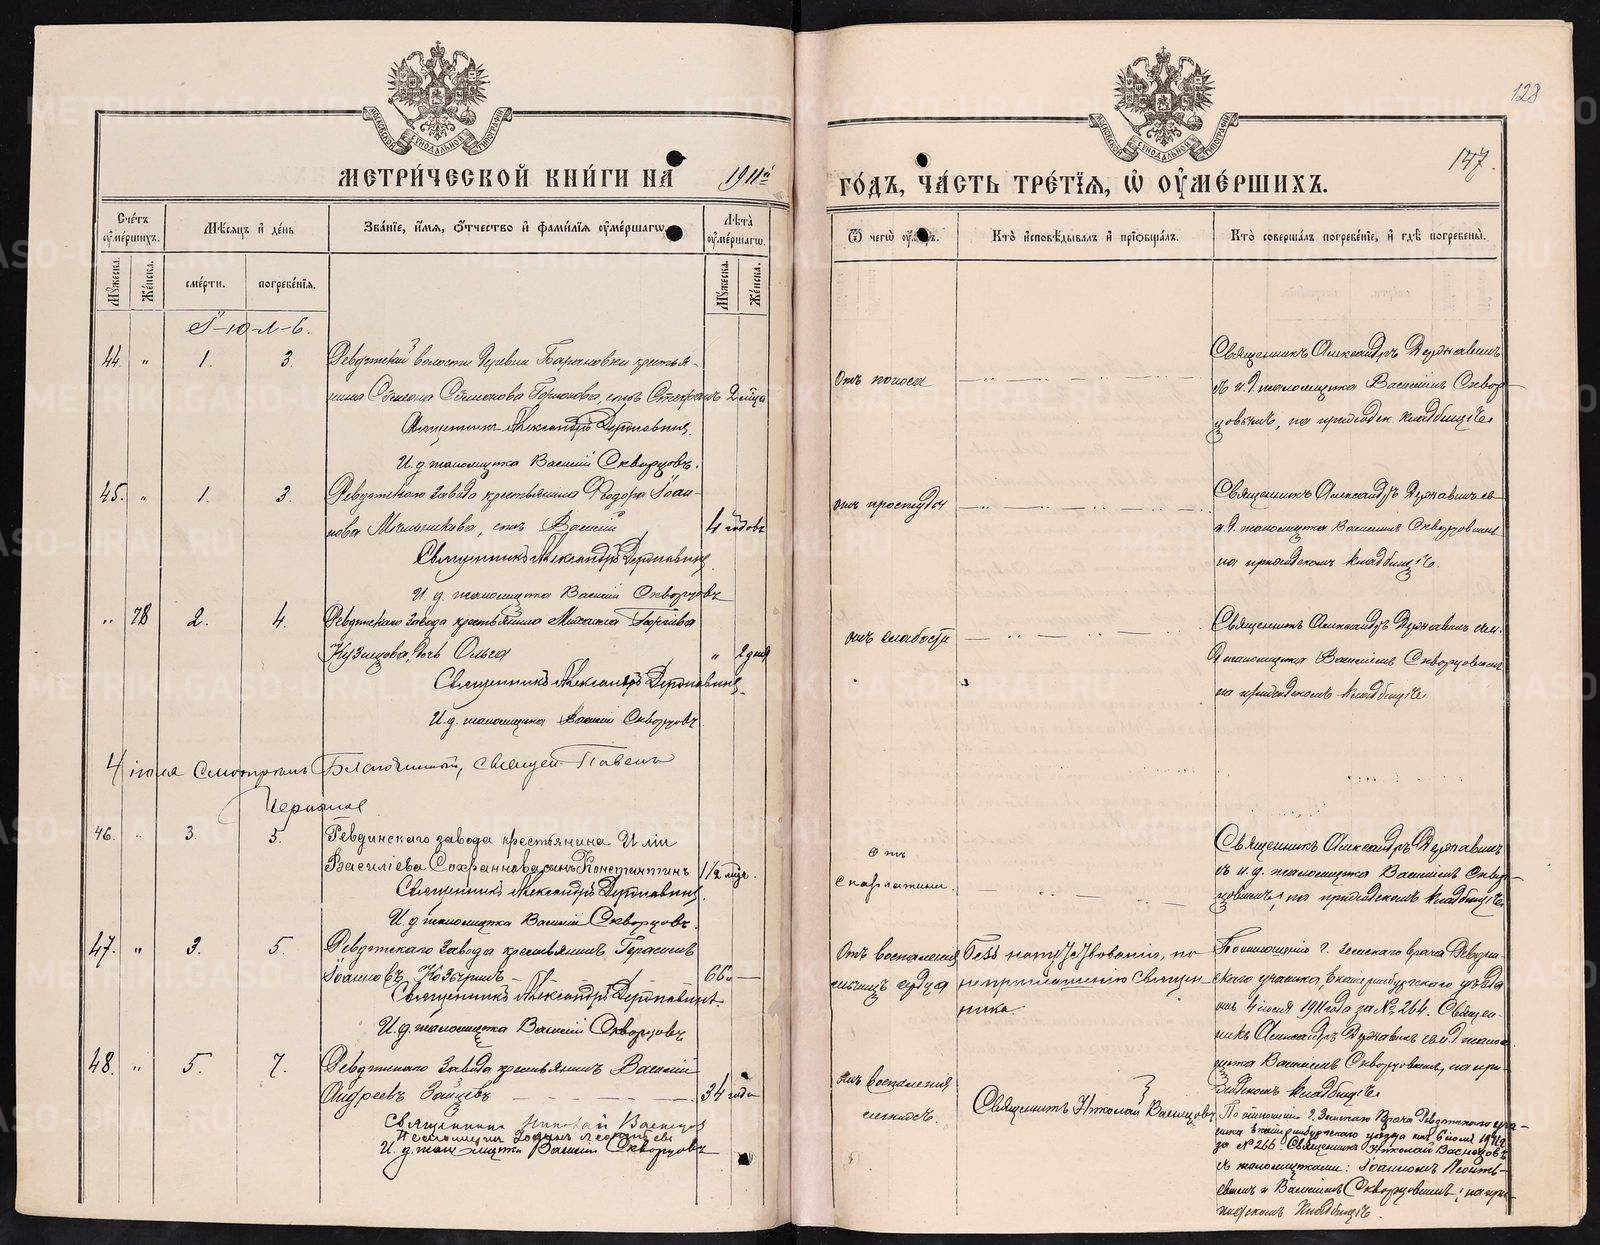 128
147.
МОСКОВСКОЙ СѴНОДАЛЬНОЙ ТИПОГРАФІИ
МОСКОВСКОЙ СѴНОДАЛЬНОЙ ТИПОГРАФІИ
МЕТРИ́ЧЕСКОЙ КНИ́ГИ НА 1911й
ГО́ДЪ, ЧА́СТЬ ТРЕ́ТІѦ, Ѡ ОУ҆МЕ́РШИХЪ.
Сче́тъ оу҆ме́ршихъ.
Мѣ́сяцъ и҆ де́нь
Зва́нїе, и҆́мѧ, ѻ҆́тчество и҆ фами́лїѧ оу҆ме́ршагѡ
Лѣ́та оу҆ме́ршагѡ.
Мꙋ́жеска.
Же́нска.
сме́рти.
погребе́нїѧ.
Мꙋ́жеска.
Же́нска.
Ѿ чегѡ̀
Кто̀ и҆сповѣ́дывалъ и҆ прїѡбща́лъ.
Кто̀ соверша́лъ погребе́нїе, и҆ гдѣ̀ погребены̀.
І-ю-л-ь.
44 " 1. 3. Ревдинской волости деревни Барановки крестья-
нина Симеона Горюнова, сынъ Стефанъ 2 м҃ца
Священникъ Александръ Державинъ.
И. д. псаломщика Василій Скворцовъ.
Отъ поноса
Священникъ Александръ Державинъ
съ и. д. псаломщика Василіемъ Сквор-
цовымъ, на приходск. кладбищѣ.
45. " 1. 3. Ревдинскаго завода крестьянина Ѳеодора Іоан-
нова сынъ Василій 4 годовъ
Священникъ Александръ Державинъ
И. д. псаломщика Василій Скворцовъ
отъ простуды
Священникъ Александръ Державинъ съ
и. д. псаломщика Василіемъ Скворцовымъ
на приходскомъ кладбищѣ.
" 78 2. 4. Ревдинскаго завода крестьянина Михаила Георгіева
Кузнецова, дочь Ольга " 2 дня
Священникъ Александръ Державинъ
И. д. псаломщика Василій Скворцовъ
отъ слабости
Священникъ Александръ Державинъ съ и.
д. псаломщика Василіемъ Скворцовымъ
на приходскомъ кладбищѣ
4 іюля Смотрѣлъ Благочинный, священ. Павелъ
46. " 3. 5. Ревдинскаго завода крестьянина Иліи
Василіева Сохраннова сынъ Константинъ 1 1/2 мѣс.
Священникъ Александръ Державинъ
И. д. псаломщика Василій Скворцовъ.
Отъ
скарлатины.
Священникъ Александръ Державинъ
съ и. д. псаломщика Василіемъ Сквор-
цовымъ, на приходскомъ кладбищѣ
47. " 3. 5. Ревдинскаго завода крестьянинъ Герасимъ
Іоанновъ Козыринъ 66
Священникъ Александръ Державинъ.
И. д. псаломщика Василій Скворцовъ
Отъ воспаленія
сердца
Безъ напутствованія, по
неприглашенію священ-
ника.
По отношенію г. земскаго врача Ревдин-
скаго участка Екатеринбургскаго уѣзда
отъ 4 іюля 1911 года за № 264. Священ-
никъ Александръ Державинъ съ и. д. псало-
мщика Василіемъ Скворцовымъ, на при-
ходскомъ кладбищѣ
48. " 5. 7. Ревдинскаго завода крестьянинъ Василій
Андреевъ Зайцевъ 34 года
Священникъ Николай Васнецов
Псаломщикъ Іоаннъ Леонтьевъ
И. д. псаломщика Василій Скворцовъ
отъ воспаленія
легкихъ.
Священникъ Николай Васнецовъ
По отношенію г. Земскаго Врача Ревдинскаго уча-
стка Екатеринбургскаго уѣзда отъ 6 іюля 1911 г.
за № 266. Священникъ Николай Васнецовъ
съ псаломщиками: Іоанномъ Леонть-
евымъ и Василіемъ Скворцовымъ, на при-
ходскомъ кладбищѣ.
METRIKI.GASO-URAL.RU